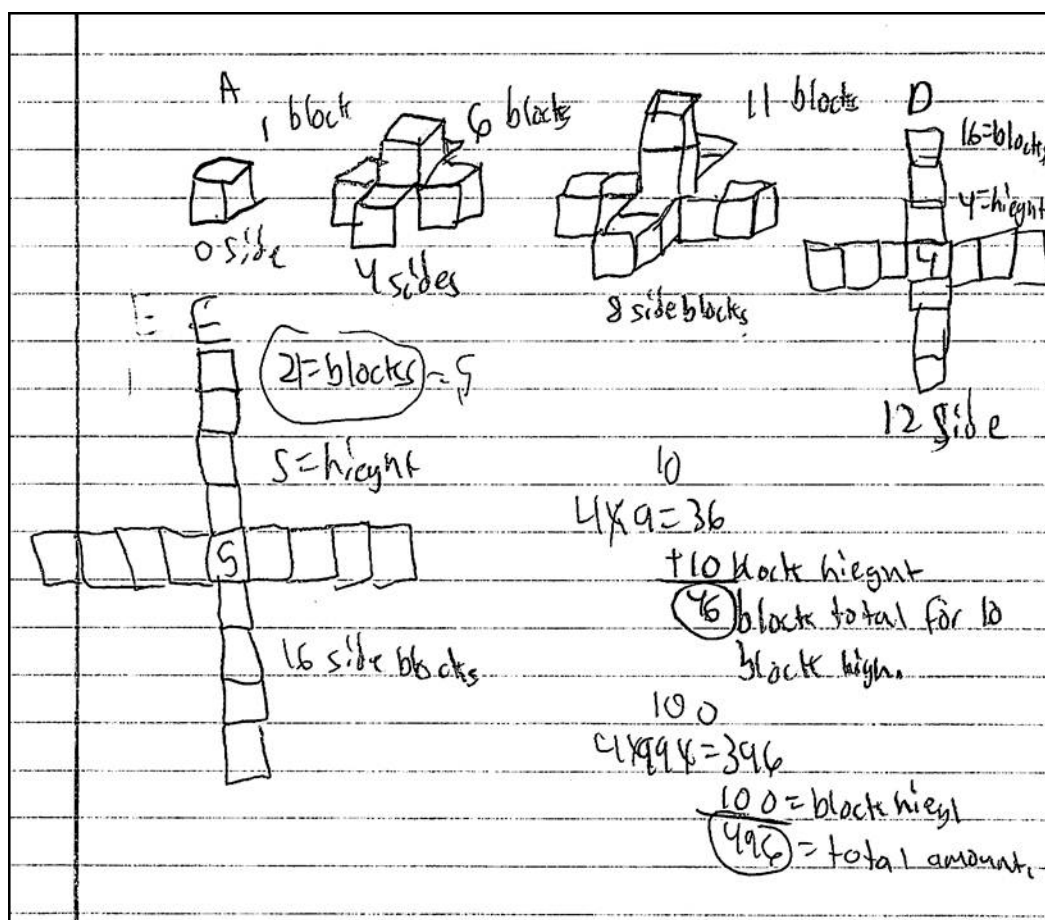 A
1 block
6 blocks
11 blocks
D
16=blocks
4=hieght
0 side
4 sides
8 side blocks
4
12 side
E
21=blocks = 5
5=hieght
5
16 side blocks
10
4x9=36
+10 block hieght
46 block total for 10
block high.
100
4x99x=396
100=block hiegt
496 = total amount.